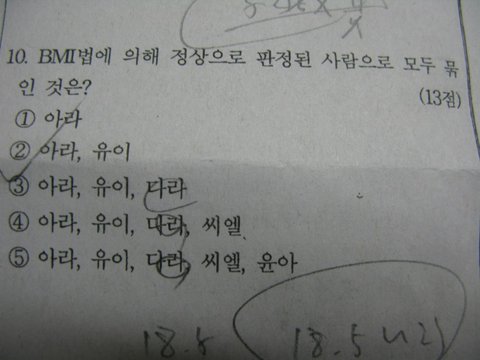 10. BMI법에 의해 정상으로 판정된 사람으로 모두 묶
인 것은? (13점)
① 아라
② 아라, 유이
③ 아라, 유이, 다라
④ 아라, 유이, 다라, 씨엘
⑤ 아라, 유이, 다라, 씨엘, 윤아
18.5 18.5